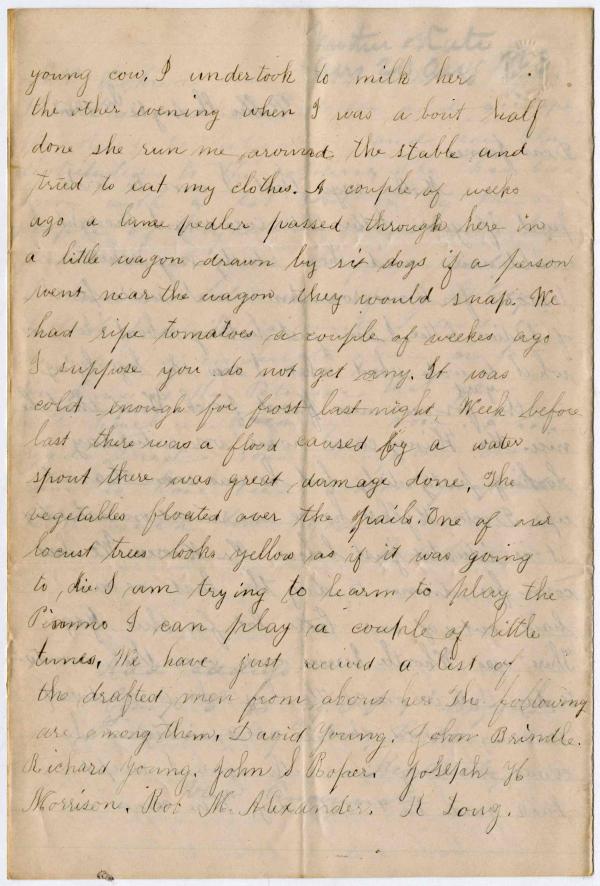 young cow. I undertook to milk her
the other evening when I was about half
done she run me around the stable and
tried to eat my clothes. A couple of weeks
ago a lame pedler passed through here in
a little wagon drawn by six dogs if a person
went near the wagon they would snap. We
had ripe tomatoes a couple of weekes ago
I suppose you do not get any. It was
cold enough for frost last night. Week before
last there was a flood caused by a water
spout there was great damage done. The
vegetables floated over the pails. One of our
locust trees looks yellow as if it was going
to die. I am trying to learm to play the
Pianno I can play a couple of little
tunes. We have just received a list of
the drafted men from about here The following
are among them. David Young. John Brindle.
Richard Young. John S Roper. Joseph H
Morrison. Rob M. Alexander. R Long.